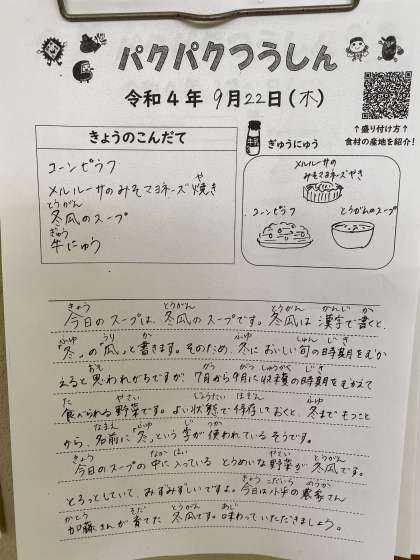 パクパクつうしん
令和4年 9月22日(木)
↑盛り付け方↑
食材の産地を紹介!
きょうのこんだて
コーンピラフ
メルルーサのみそマヨネーズ焼き
冬瓜のスープ
牛にゅう
牛乳
ぎゅうにゅう
メルルーサの
みそマヨネーズやき
コーンピラフ
とうがんのスープ
今日のスープは、冬瓜のスープです。冬瓜は漢字で書くと、
"冬"の"瓜"と書きます。そのため、冬においしい旬の時期をむか
えると思われがちですが、7月から9月に収穫の時期をむかえて
食べられる野菜です。よい状態で保存しておくと、冬までもつこと
から、名前に"冬"という字が使われているそうです。
今日のスープの中に入っているとうめいな野菜が冬瓜です。
とろっとしていて、みずみずしいですよ。今日は小平の農家さん
加藤さんが育てた冬瓜です。味わっていただきましょう。